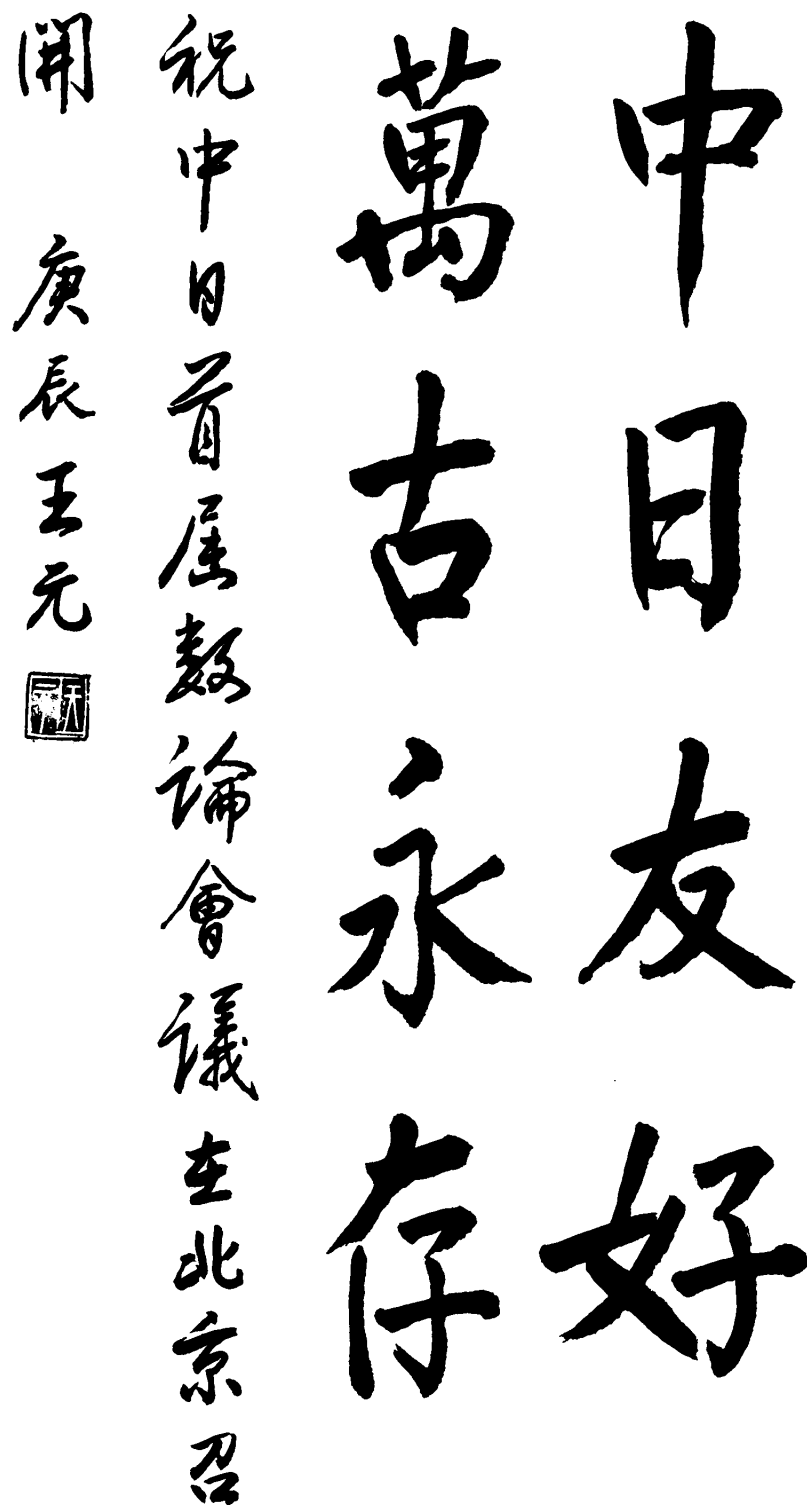 中日友好
萬古永存
祝中日首届数論會議在北京召
開 庚辰王元